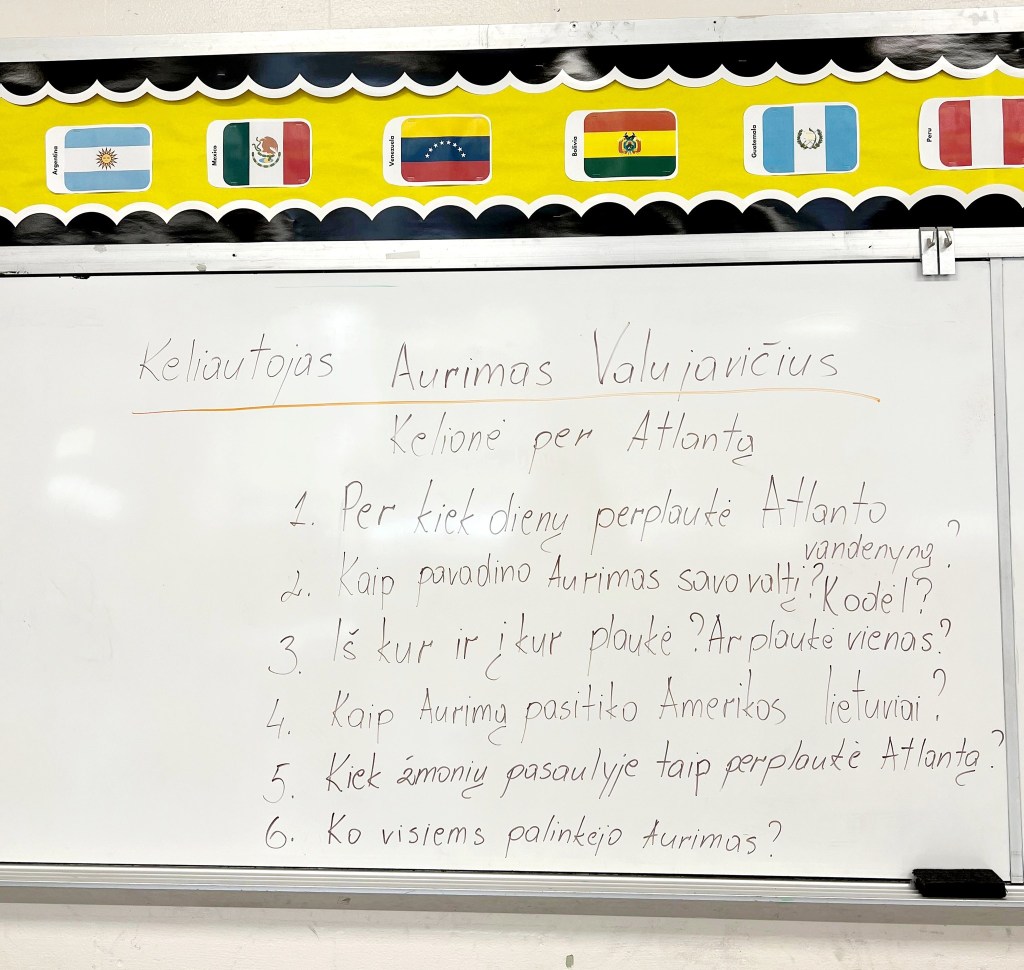 Argentina
Mexico
Venezuela
Bolivia
Guatemala
Peru
Keliautojas Aurimas Valujavičius
Kelionė per Atlantą
1. Per kiek dienų perplaukė Atlanto
vandenyną?
2. Kaip pavadino Aurimas savo valtį? Kodėl?
3. Iš kur ir į kur plaukė? Ar plaukė vienas?
4. Kaip Aurimą pasitiko Amerikos lietuviai?
5. Kiek žmonių pasaulyje taip perplaukė Atlantą?
6. Ko visiems palinkėjo Aurimas?